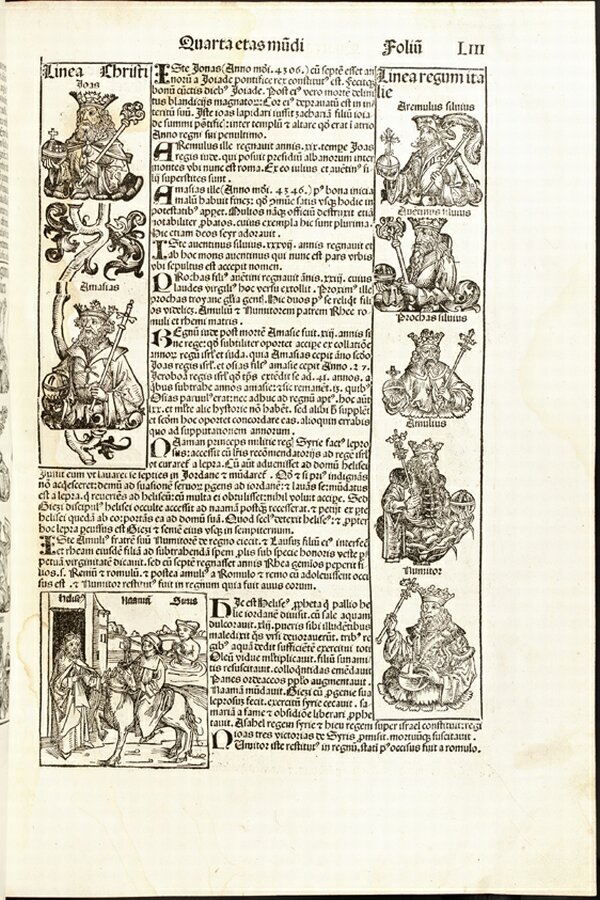 Quarta etas mūdi Foliū LIII
Linea Christi
Joas
Amasias
Iste Jonas (Anno mūdi. 4306.) cū septē esset an
norū a Joiade pontifice rex constitutꝰ est. fecitqꝫ
bonū cūctis diebꝰ Joiade. Post eiꝰ vero mortē delini
tus blandicijs magnatoꝝ: Cor eiꝰ depꝛauatū est in in
teritū suū. Iste ioas lapidari iussit zachariā filiū ioia
de summi pōtificꝭ: inter templū ⁊ altare qd̓ erat ī atrio
Anno regni sui penultimo.
Aremulus ille regnauit annis .xix. tempe Joas
regis iude. qui posuit presidiū albanorum inter
montes vbi nunc est roma. Ex eo iulius et auētinꝰ fi
lij superstites sunt.
Amasias ille (Anno mōi. 4346.) pꝰ bona inicia
amalū habuit finez: qd̓ mūc satis vsqꝫ hodie in
potestatibꝰ appet. Multos nāqꝫ officiū destruxit etiā
notabiliter ꝓbatos. cuius exempla hic sunt plurima.
Hic etiam deos seyr adorauit.
Iste auentinus siluius .xxxvij. annis regnauit et
ab hoc mons auentinus qui nunc est pars vrbis
vbi sepultus est accepit nomen.
Prochas filiꝰ auētini regnauit ānis .xxiij. cuius
laudes virgiliꝰ hoc versu extollit. Proximꝰ ille
prochas troyane glīa gentꝭ. Hic duos pꝰ se reliqt fili
os videlicꝫ. Amuliū ⁊ Numitorem patrem Rhee ro
muli et rhemi matris.
Regnū iude post mortē Amasie fuit .xiij. annis si
ne rege: qd̓ subtiliter oportet accipe ex collatiōe
annoꝝ regū isrl̓ et iuda. quia Amasias cepit āno scd̓o
Joas regis isrl̓. et osias filiꝰ amasie cepit Anno .27.
Jeroboā regis isrl̓
lxx. et miste alie hystorie nō habēt. sed alibi h̓ supplēt
et scd̓m hoc oportet concordare eas. alioquin errabis
quo ad supputationem annorum.
Naaman princeps militie regꝭ Syrie factꝰ lepro
sus: accessit cū lr̄is recōmendatorijs ad rege isrl̓
vt curaret̄ a lepra. Cū aūt aduenisset ad domū helisei
iussit eum vt lauaret se septies in Jordane ⁊ mūdaret̄. Qd̓ ⁊ si pꝰ indignās
nō acquiesceret: demū ad suasione seruoꝝ pgens ad iordanē: ⁊ lauās se: mūdatus
est a lepra. qd̓ reuertēs ad heliseū: cū multa ei obtulisset: nihil voluit accipe. Sed
Giezi discipulꝰ helisei occulte accessit ad naamā postqꝫ recesserat. ⁊ petijt ex pte
helisei quedā ab eo: portās ea ad domū suā. Quod scel̓ detexit heliseꝰ: ⁊ ꝓpter
hoc lepra pcussus est Giezi ⁊ semē eius vsqꝫ in sempiternum.
Iste Amulꝰ fratrē suū Numitorē de regno eiecit. ⁊ Lausū filiū eiꝰ interfec̄
et rheam eiusdē filiā ad subtrahendā spem plis sub specie honoris veste p̄
petuā virginitatē dicauit. sed cū septē regnasset annis Rhea gemlos peperit fi
lios. s. Remū ⁊ romulū. ⁊ postea amulꝰ a Romulo ⁊ remo cū adoleuissent occi
sus est. ⁊ Numitor restitutꝰ fuit in regnum quia fuit auus eorum.
Heliseꝰ Naamā Sirus
Hic est Heliseꝰ ꝓpheta qd̓ pallio he
lie iordanē diuisit. cū sale aquam
dulcorauit. xlij. pueris sibi illudētibus
maledixit qs vrsi deuorauerūt. tribꝰ re
gibꝰ aquā dedit sufficiētē exercitui toti
Oleū vidue mltiplicauit. filiū sunami
tis resuscitauit. colloqntidas emēdauit
Panes ordeaceos pplo augmentauit.
Naamā mūdauit. Giezi cū ꝓgenie sua
leprosuꝫ fecit. exercitū syrie cecauit. sa
mariā a fame ⁊ obsidiōe liberari ꝓphe
tauit. Asahel regem syrie ⁊ hieu regem super israel constituit: regi
ioas tres victorias de Syris ꝓmisit. mortuūqꝫ suscitauit.
Numitor iste restitutꝰ in regnū. stati pꝰ occisus fuit a romulo.
Linea regum ita
lie
Aremulus siluius
Auētinus siluius
Prochas siluius
Amulius
Numitor